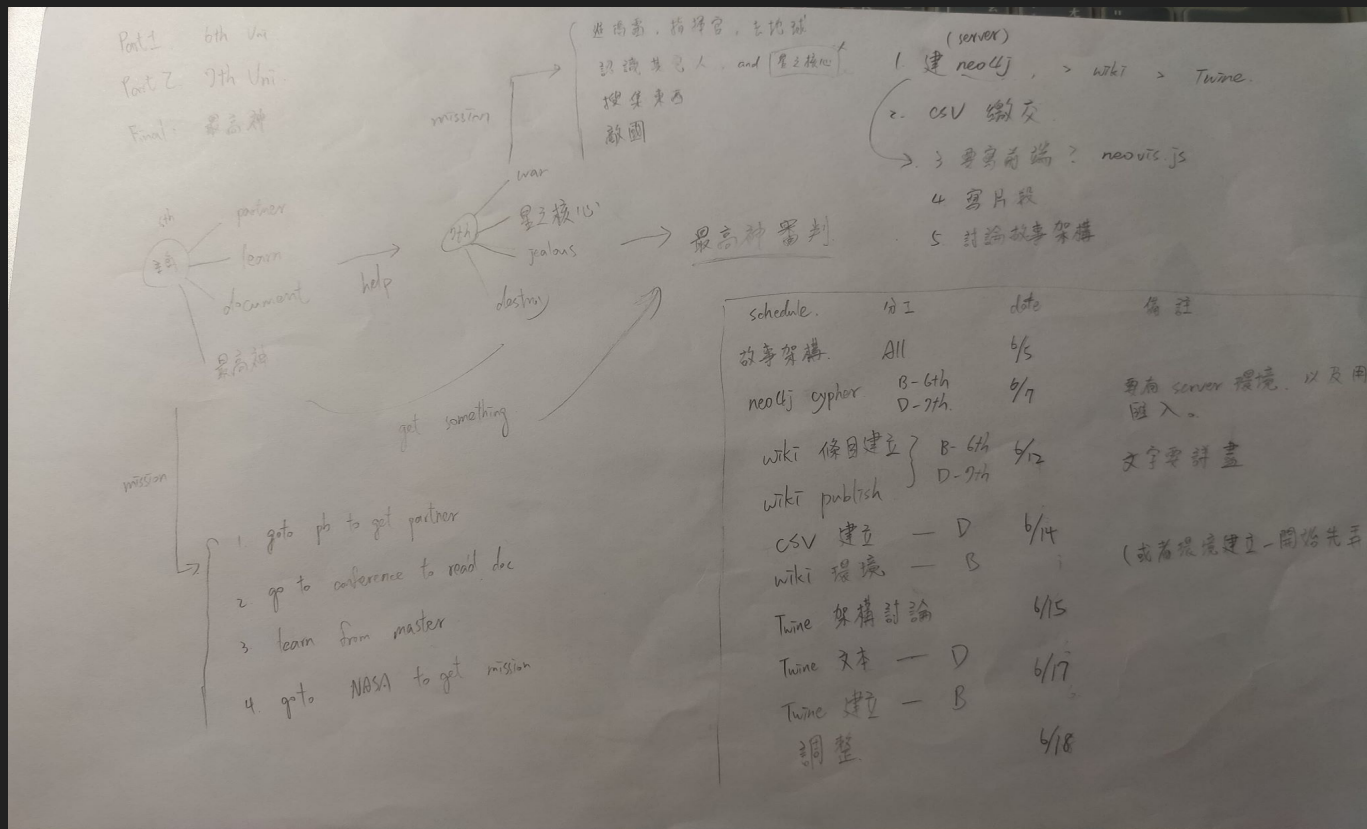 Part 1. 6th Uni
Part 2 7th Uni
Final: 最高神
6th
主角
partner
learn
document
最高神
help
mission
指揮官, 去地球
and 星之核心
搜集東西
敵國
7th
war
星之核心
jealous
destroy
最高神審判
get something
mission
1. goto ph to get partner
2. go to conference to read doc
3 learn from master
4. goto NASA to get mission
(server)
1. 建 neo4j, > wiki > Twine.
2. CSV 繳交
3 要寫前端? neovis.js
4 寫片段
5 討論故事架構
schedule. 分工 date 備註
故事架構. All 6/5
neo4j cypher B-6th D-7th. 6/7 要有 server 環境, 以及用
匯入。
wiki 條目建立 B-6th 6/12 文字要詳盡
wiki publish D-7th
CSV 建立 — D 6/14
wiki 環境 — B (或者環境建立一開始先弄
Twine 架構討論 6/15
Twine 文本 — D 6/17
Twine 建立 — B
調整 6/18